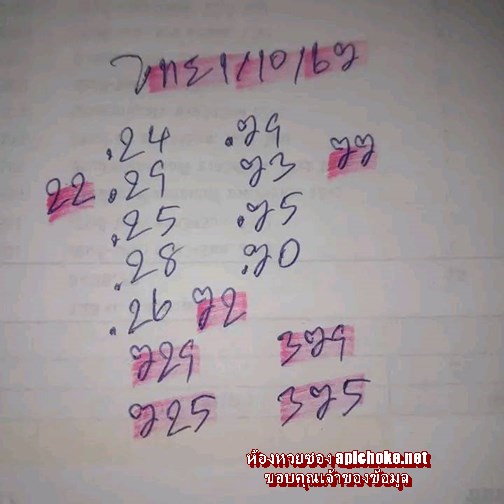 ไทย 1/10/67
.24 .79
22 .29 73 77
.25 .75
.28 .70
.26 72
729 379
725 375
ห้องหวยซอง apichoke.net
ขอบคุณเจ้าของข้อมูล